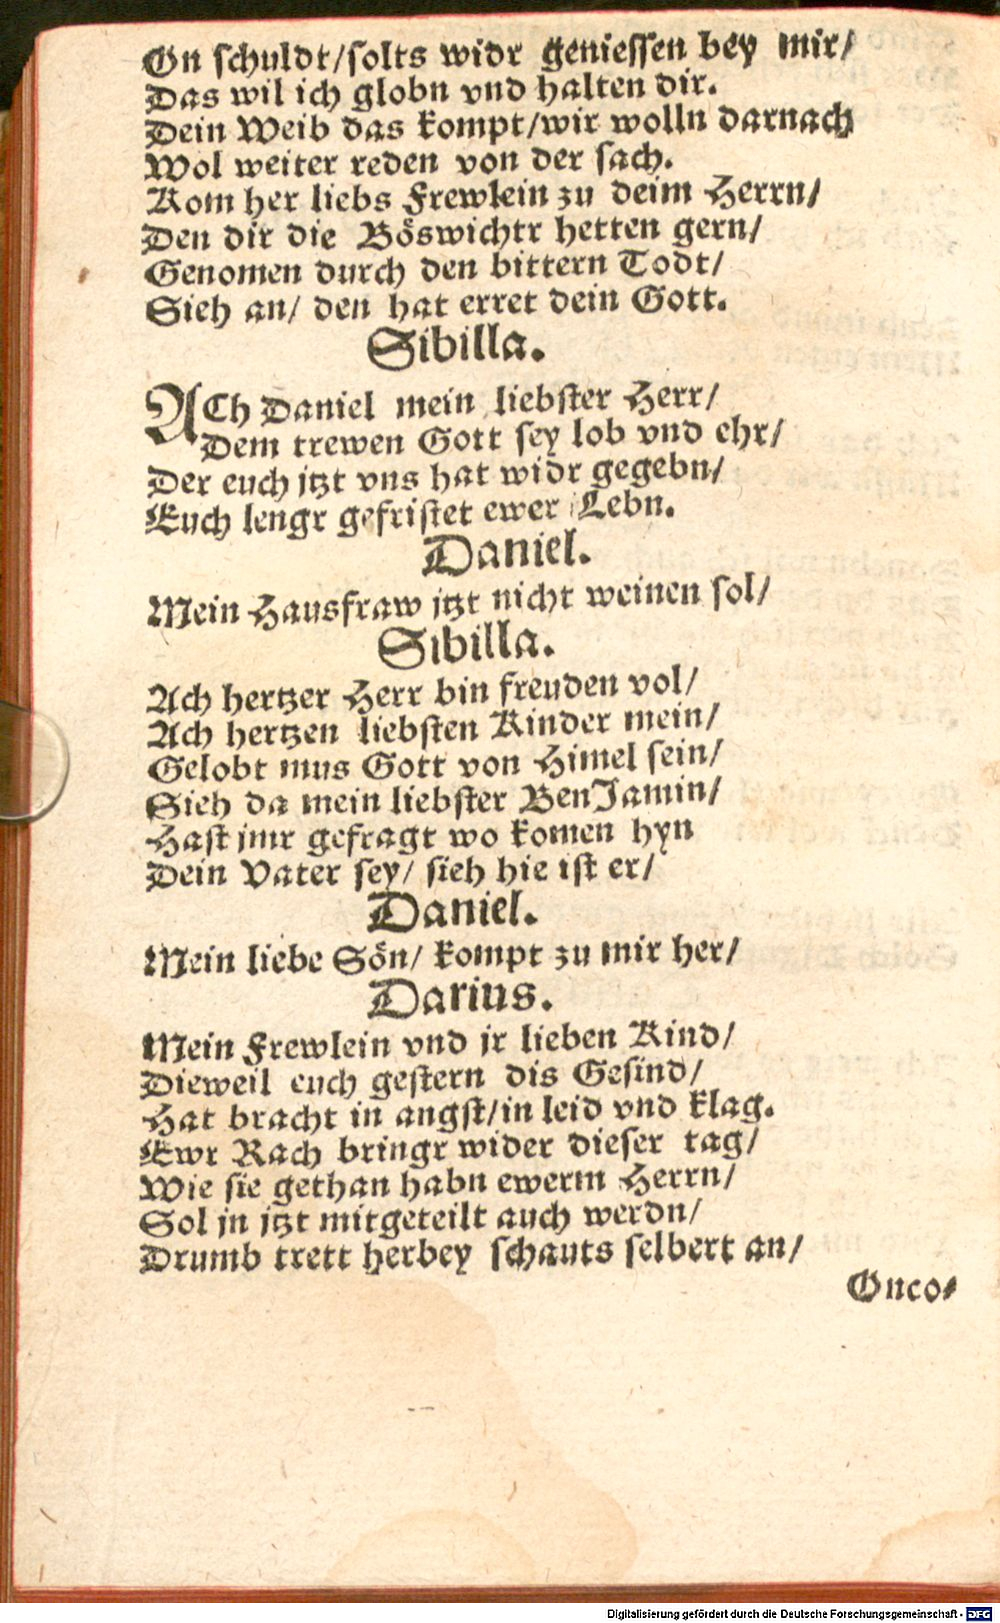 On schuldt/solts widr geniessen bey mir/
Das wil ich globn vnd halten dir.
Dein Weib das kompt/wir wolln darnach
Wol weiter reden von der sach.
Kom her liebs Frewlein zu deim Herrn/
Den dir die Böswichtr hetten gern/
Genomen durch den bittern Todt/
Sieh an/ den hat erret dein Gott.
Sibilla.
ACh Daniel mein liebster Herr/
Dem trewen Gott sey lob vnd ehr/
Der euch jtzt vns hat widr gegebn/
Euch lengr gefristet ewer Lebn.
Daniel.
Mein Hausfraw jtzt nicht weinen sol/
Sibilla.
Ach hertzer Herr bin freuden vol/
Ach hertzen liebsten Kinder mein/
Gelobt mus Gott von Himel sein/
Sieh da mein liebster BenJamin/
Hast jmr gefragt wo komen hyn
Dein Vater sey/ sieh hie ist er/
Daniel.
Mein liebe Sön/ kompt zu mir her/
Darius.
Mein Frewlein vnd jr lieben Kind/
Dieweil euch gestern dis Gesind/
Hat bracht in angst/in leid vnd klag.
Ewr Rach bringr wider dieser tag/
Wie sie gethan habn ewerm Herrn/
Sol jn jtzt mitgeteilt auch werdn/
Drumb trett herbey schauts selbert an/
Onco-
Digitalisierung gefördert durch die Deutsche Forschungsgemeinschaft - DFG